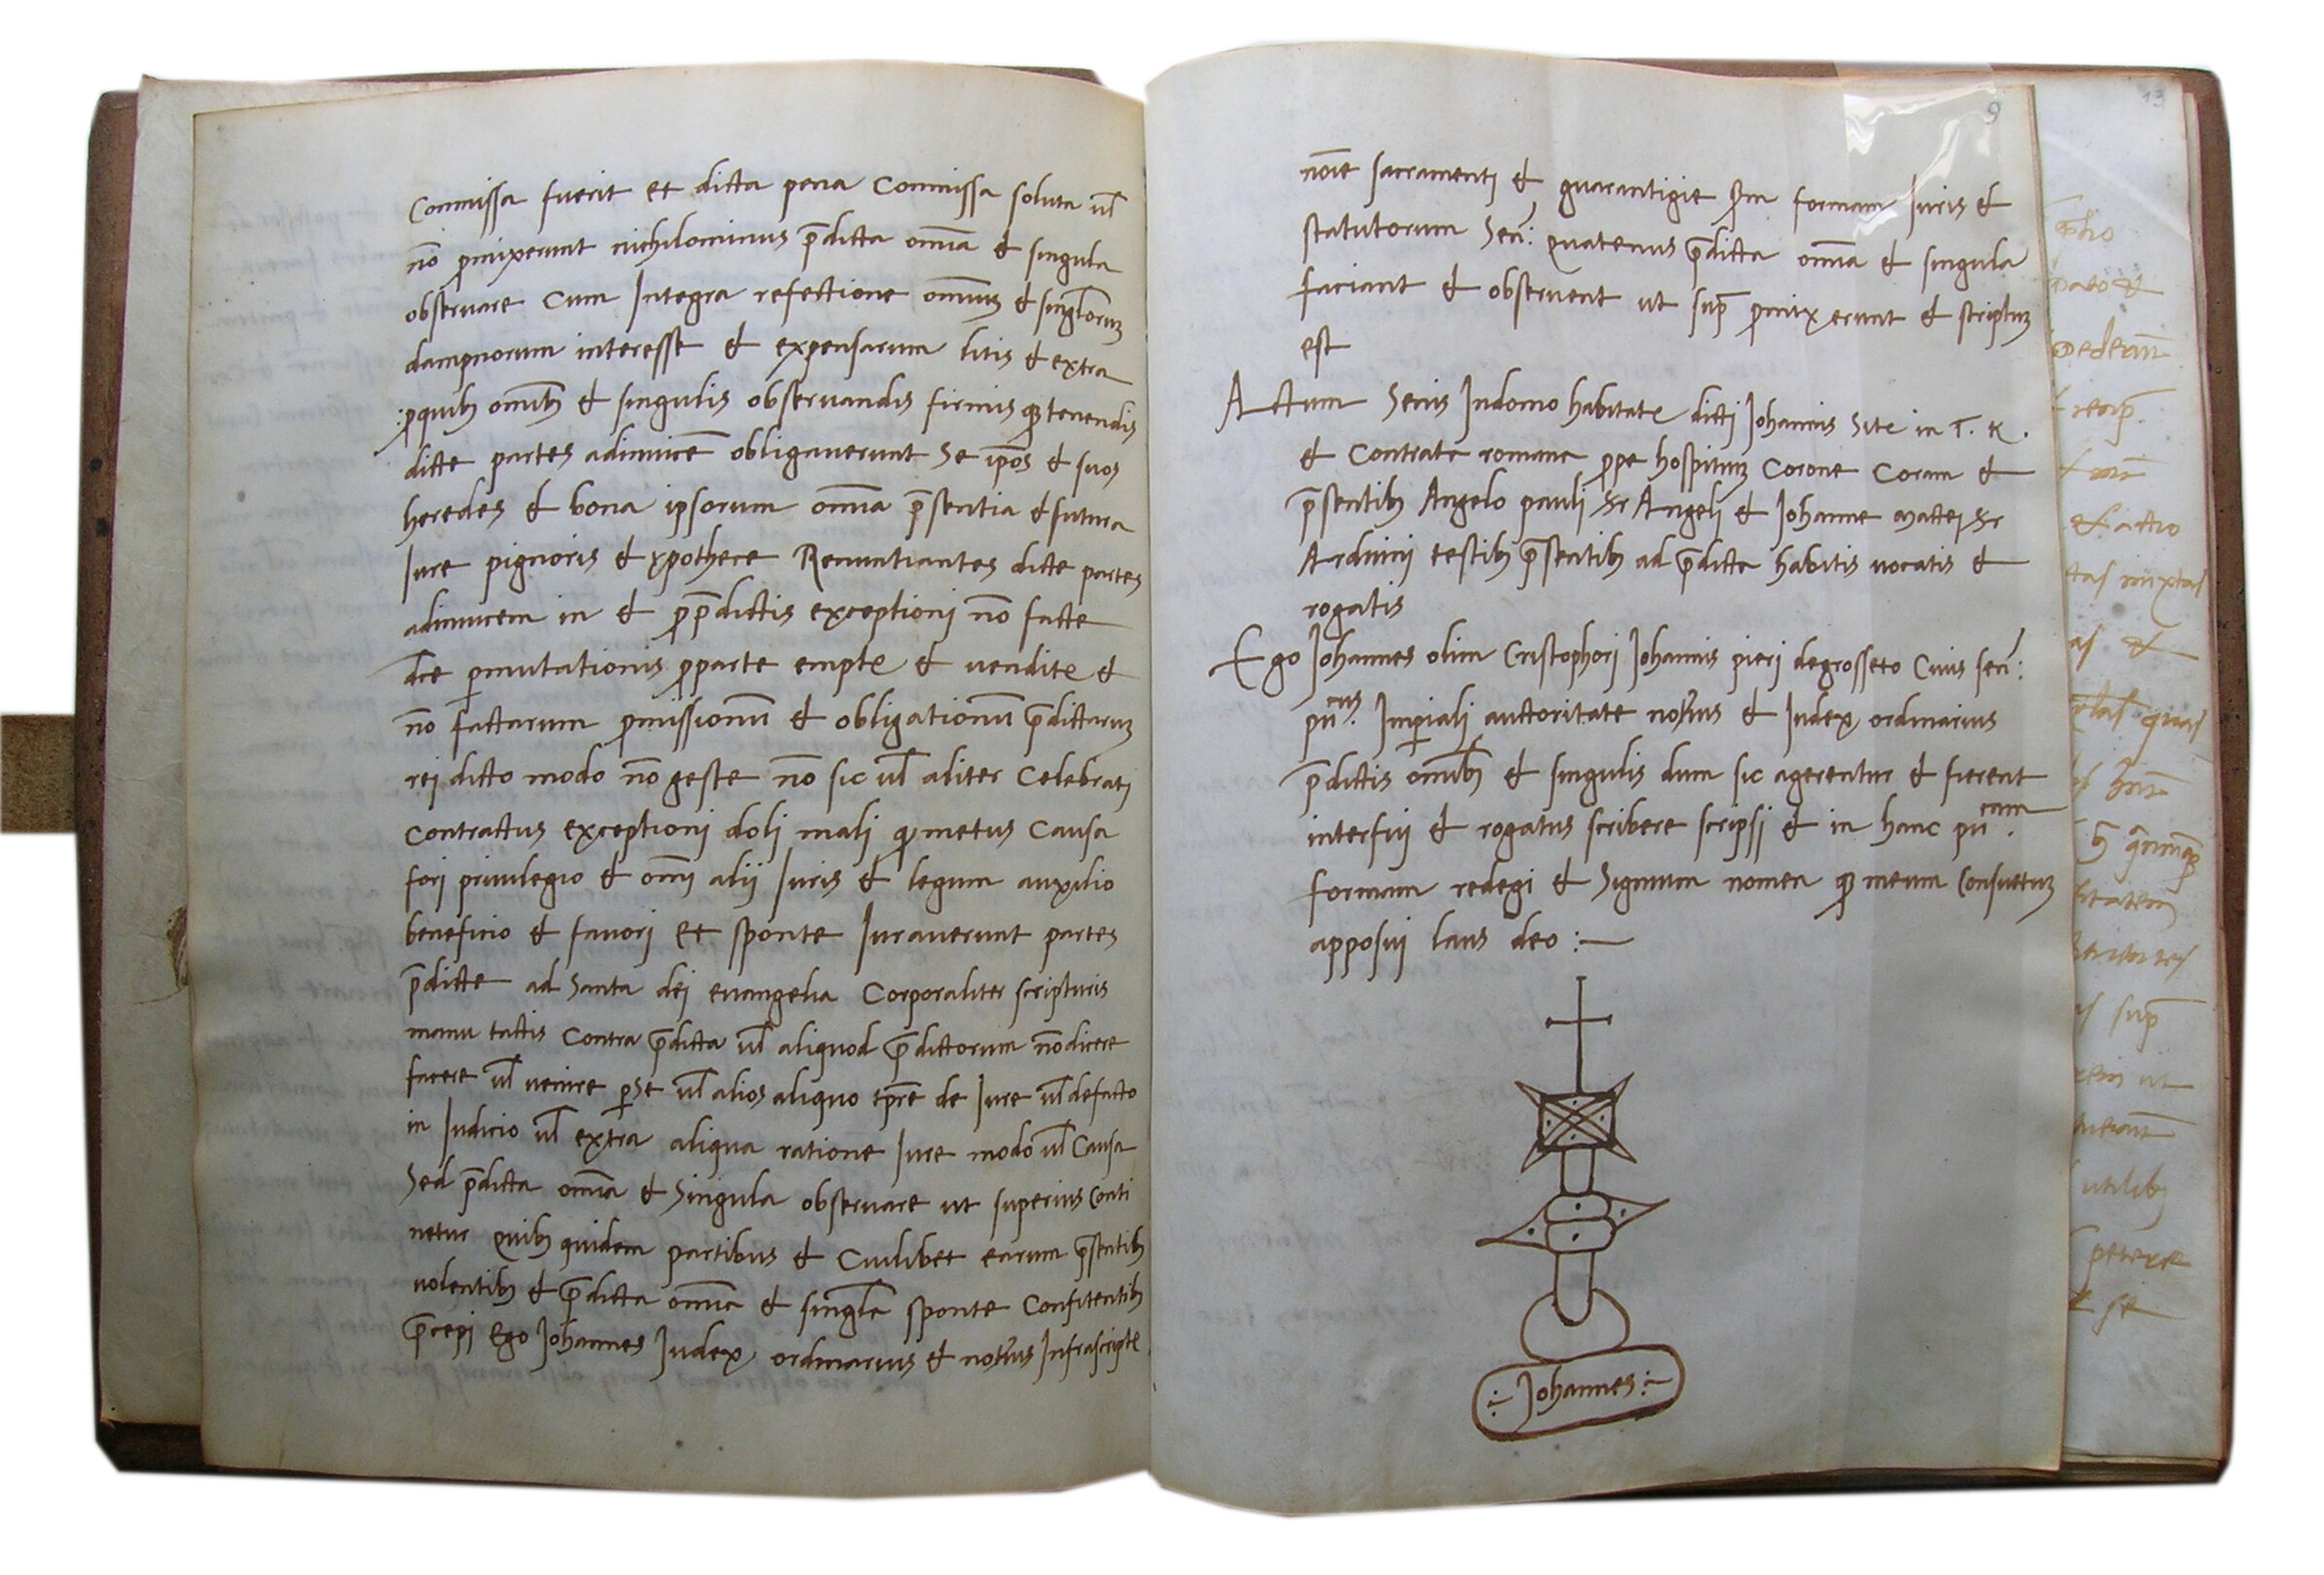 Commissa fuerit et dicta pena Commissa soluta ul̄
nō promixerunt nichilominus p̄dicta om̄ia & singula
observare Cum Integra refectione om̄ium & singlorum
dampnorum interesse & expensarum litis & extra
proquibꝫ om̄ibꝫ & singulis observandis firmis qꝫ tenendis
dicte partes adinuicē obligauerunt Se ip̄os & suos
heredes & bona ipsorum om̄ia p̄sentia & futura
Iure pignoris & ypothece Renuntiantes dicte partes
adinuicem in & pro p̄dictis exceptioni nō facte
dc̄e permutationis proparte empte & vendite &
nō factarum promissionū & obligationū p̄dictaruꝫ
rej dicto modo nō geste nō sic ul̄ aliter Celebratj
contractus exceptionj doli malj qꝫ metus Causa
forj priuilegio & om̄j alij Iuris & legum auxilio
beneficio & fauorj Et sponte Iurauerunt partes
p̄dicte ad Santa dej euangelia Corporaliter scripturis
manu tactis Contra p̄dicta ul̄ aliquod p̄dictorum nō dicere
facere ul̄ uenire per se ul̄ alios aliquo tp̄re de Iure ul̄ defacto
in Iudicio ul̄ extra aliqua ratione Iure modo ul̄ Causa
Sed p̄dicta om̄ia & Singula observare ut superius Conti
netur Quibꝫ quidem partibus & Cuilibet earum p̄sētibꝫ
uolentibꝫ & p̄dicta om̄ia & singl̄a sponte Confitentibꝫ
p̄cepj Ego Johannes Iudex ordinarius & notr̄ius Infrascripte
9
noīe sacramentj & guarantigie formam Iuris &
statutorum Seń: quatenus p̄dicta om̄ia & singula
faciant & observent ut sup̄ promixerunt & scriptuꝫ
est
Actum Senis Indomo habitate dictj Johannis Site in T. K.
& Contrata romana prope hospituꝫ Corone Coram &
p̄sentibꝫ Angelo paulj Ser Angelj & Johanne Mattej Ser
Arduinj testibꝫ p̄sentibꝫ ad p̄dicta habitis uocatis &
rogatis
Ego Johannes olim Cristophorj Johannis pieri degrosseto Ciuis señ:
pucus. Imperialj auctoritate notr̄ius & Iudex ordinarius
p̄dictis om̄ibꝫ & singulis dum sic agerentur & fierent
interfuj & rogatus scribere scripsj & in hanc pucam.
formam redegi & Signum nomen qꝫ meum Consuetuꝫ
apposuj laus deo :—
:- Johannes :-
13
& actio
mixtas
&
quas
sup̄
ut
utilibꝫ
petere
se